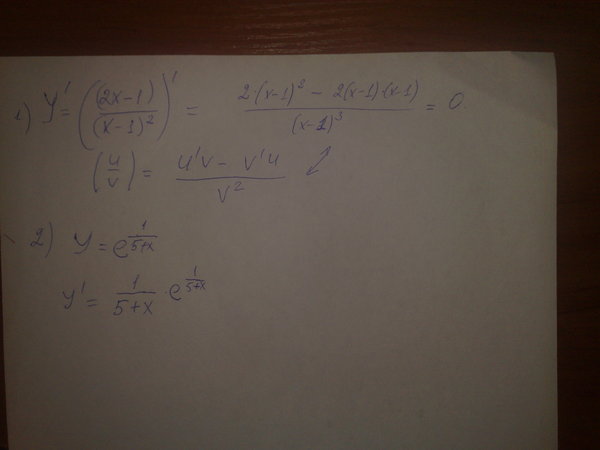 1) y' = ((2x-1)/(x-1)²)' = (2·(x-1)² - 2(x-1)·(x-1))/(x-1)³ = 0.
(u/v) = (u'v - v'u)/v²
2) y = e^(1/(5+x))
y' = 1/(5+x) · e^(1/(5+x))